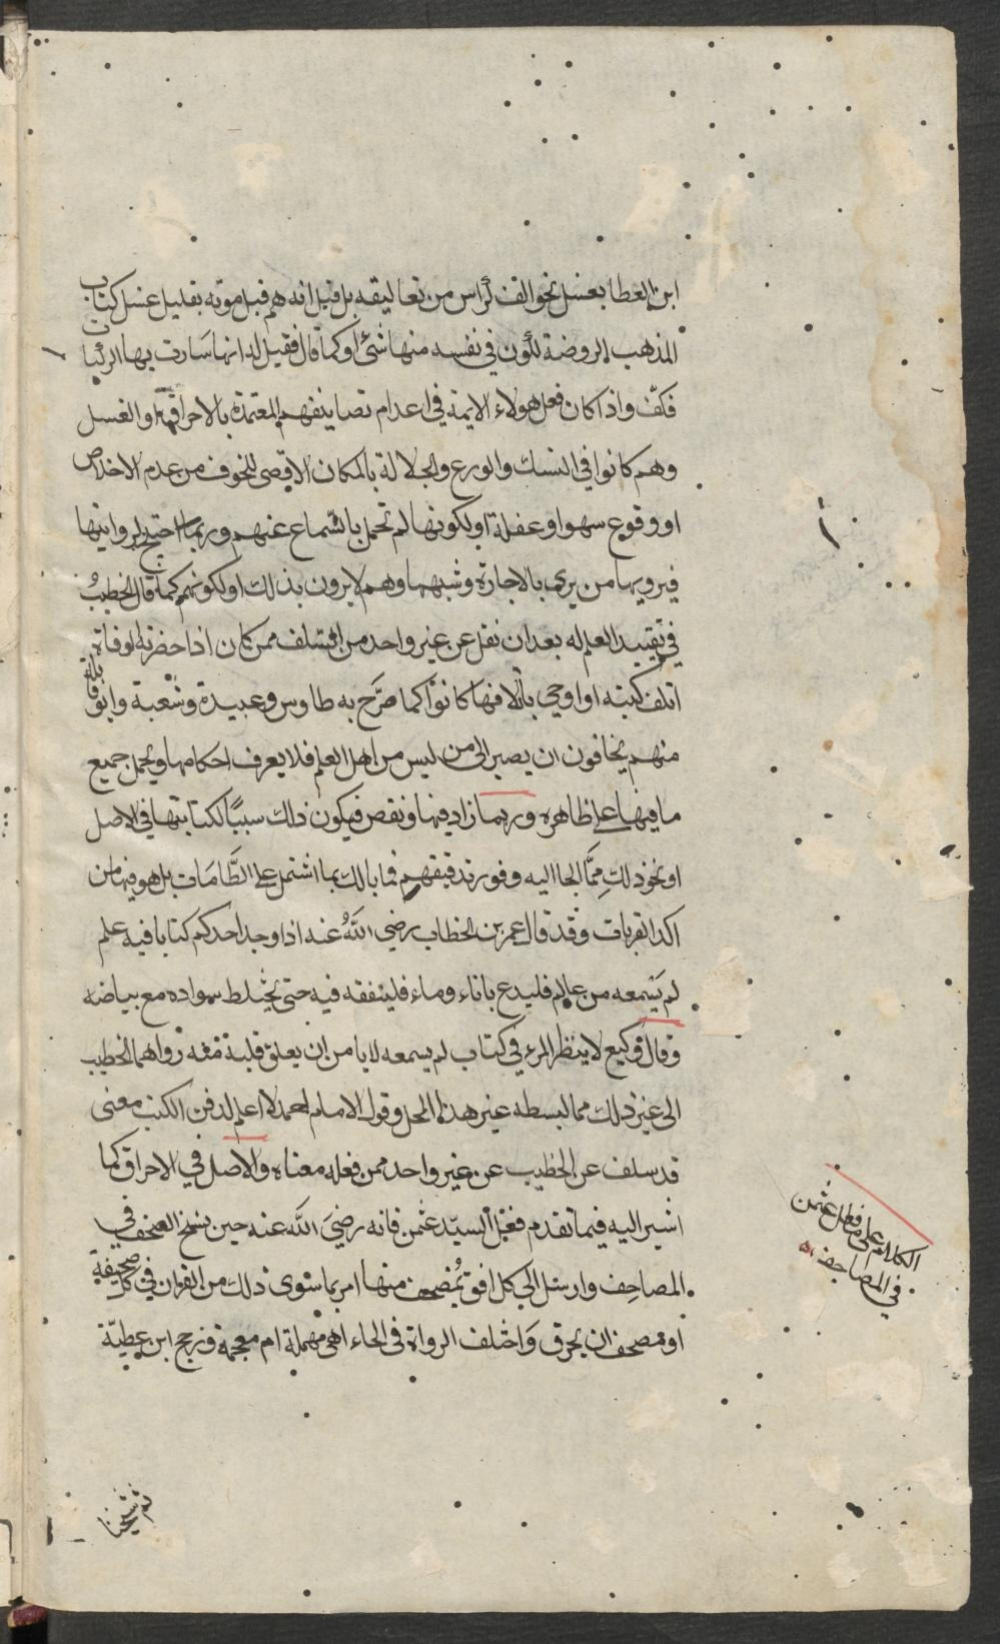 ابن العطا بغسل نحو الف كراس من تعاليقه بل قيل انه هم قبل موته بقليل غسل كتاب
المذهب الروضة لكون في نفسه منها شئ او كما قال فقيل له انها سارت بها الركبان
فكف واذا كان فعل هولاء الايمة في اعدام تصانيفهم المعتمدة بالاحراق او الغسل
وهم كانوا في النسك والورع والجلالة بالمكان الاقصى للخوف من عدم الاخلاص
او وقوع سهو او غفلة او لكونها لم تحمل بالسماع عنهم وربما احتيج لروايتها
فيرويها من يرى بالاجازة وشبهها وهم لا يرون بذلك او لكونهم كما قال الخطيب
في تقييد العلم له بعد ان نقل عن غير واحد من السلف ممن كان اذا حضرته الوفاة
اتلف كتبه او اوحى باتلافها كانوا كما صرح به طاوس وعبيدة وشعبة وابو قلابة
منهم يخافون ان يصير الى من ليس من اهل العلم فلا يعرف احكامها ويحمل جميع
ما فيها على ظاهره وربما زاد فيها ونقص فيكون ذلك سببا لكتابتها في الاصل
او نحو ذلك مما الجا اليه وفور تدقيقهم فما بالك بما اشتمل على الطامات بل هو فيها من
اكد القربات وقد قال عمر بن الخطاب رضي الله عنه اذا وجد احدكم كتابا فيه علم
لم يسمعه من عالم فليدع باناء وماء فلينقعه فيه حتى يختلط سواده مع بياضه
وقال وكيع لا ينظر المرء في كتاب لم يسمعه لا يامن ان يعلق قلبه منه رواهما الخطيب
الى غير ذلك مما لبسطه غير هذا المحل وقول الامام احمد لا اعلم لدفن الكتب معنى
قد سلف عن الخطيب عن غير واحد ممن فعله معناه والاصل في الاحراق كما
اشير اليه فيما تقدم فعل السيد عثمن فانه رضي الله عنه حين نسخ الصحف في
المصاحف وارسل الى كل افق بمصحف منها امر بما سوى ذلك من القران في كل صحيفة
او مصحف ان يحرق واختلف الرواة في الحاء اهي مهملة ام معجمة ورجح ابن عطية
الكلام على فعل عثمن
في المصاحف
ثم شيخنا